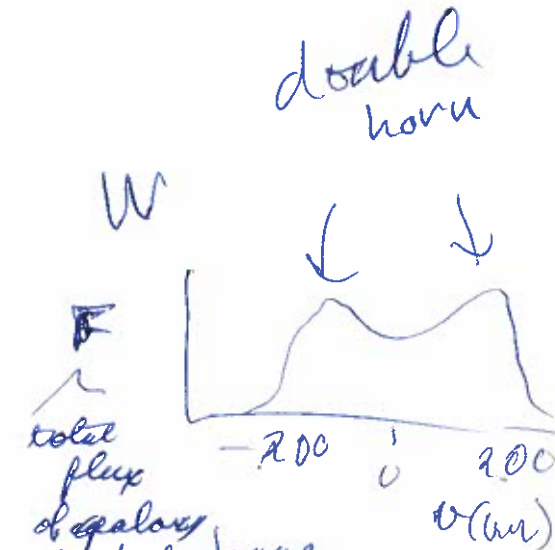 double
horn
W
F
total
flux
of galaxy
-200
0
200